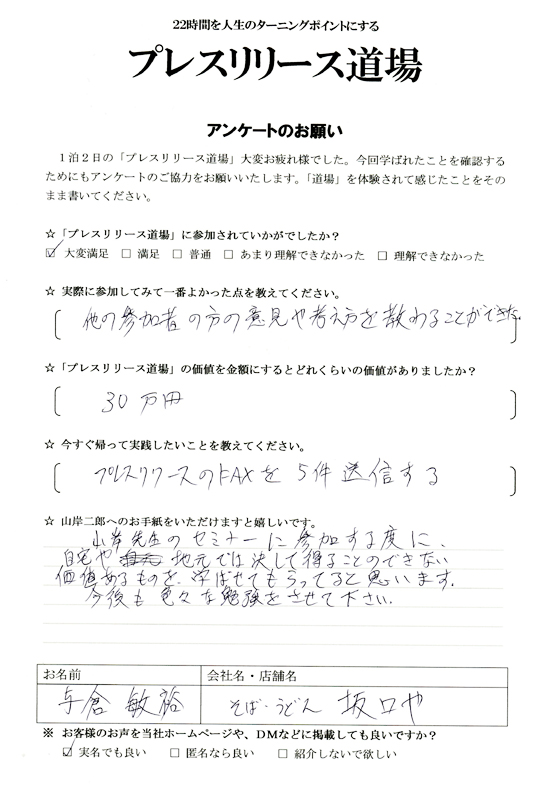 22時間を人生のターニングポイントにする
プレスリリース道場
アンケートのお願い
1泊2日の「プレスリリース道場」大変お疲れ様でした。今回学ばれたことを確認する
ためにもアンケートのご協力をお願いいたします。「道場」を体験されて感じたことをその
まま書いてください。
☆「プレスリリース道場」に参加されていかがでしたか?
☑ 大変満足 □ 満足 □ 普通 □ あまり理解できなかった □ 理解できなかった
☆ 実際に参加してみて一番よかった点を教えてください。
他の参加者の方の意見や考え方を教わることができた
☆「プレスリリース道場」の価値を金額にするとどれくらいの価値がありましたか?
30万円
☆ 今すぐ帰って実践したいことを教えてください。
プレスリリースのFAXを5件送信する
☆ 山岸二郎へのお手紙をいただけますと嬉しいです。
山岸先生のセミナーに参加する度に、
自宅や地元では決して得ることのできない
価値あるものを、学ばせてもらってると思います。
今後も色々な勉強をさせて下さい。
お名前 会社名・店舗名
与倉 敏裕 そば・うどん 坂口や
※ お客様のお声を当社ホームページや、DMなどに掲載しても良いですか?
☑ 実名でも良い □ 匿名なら良い □ 紹介しないで欲しい